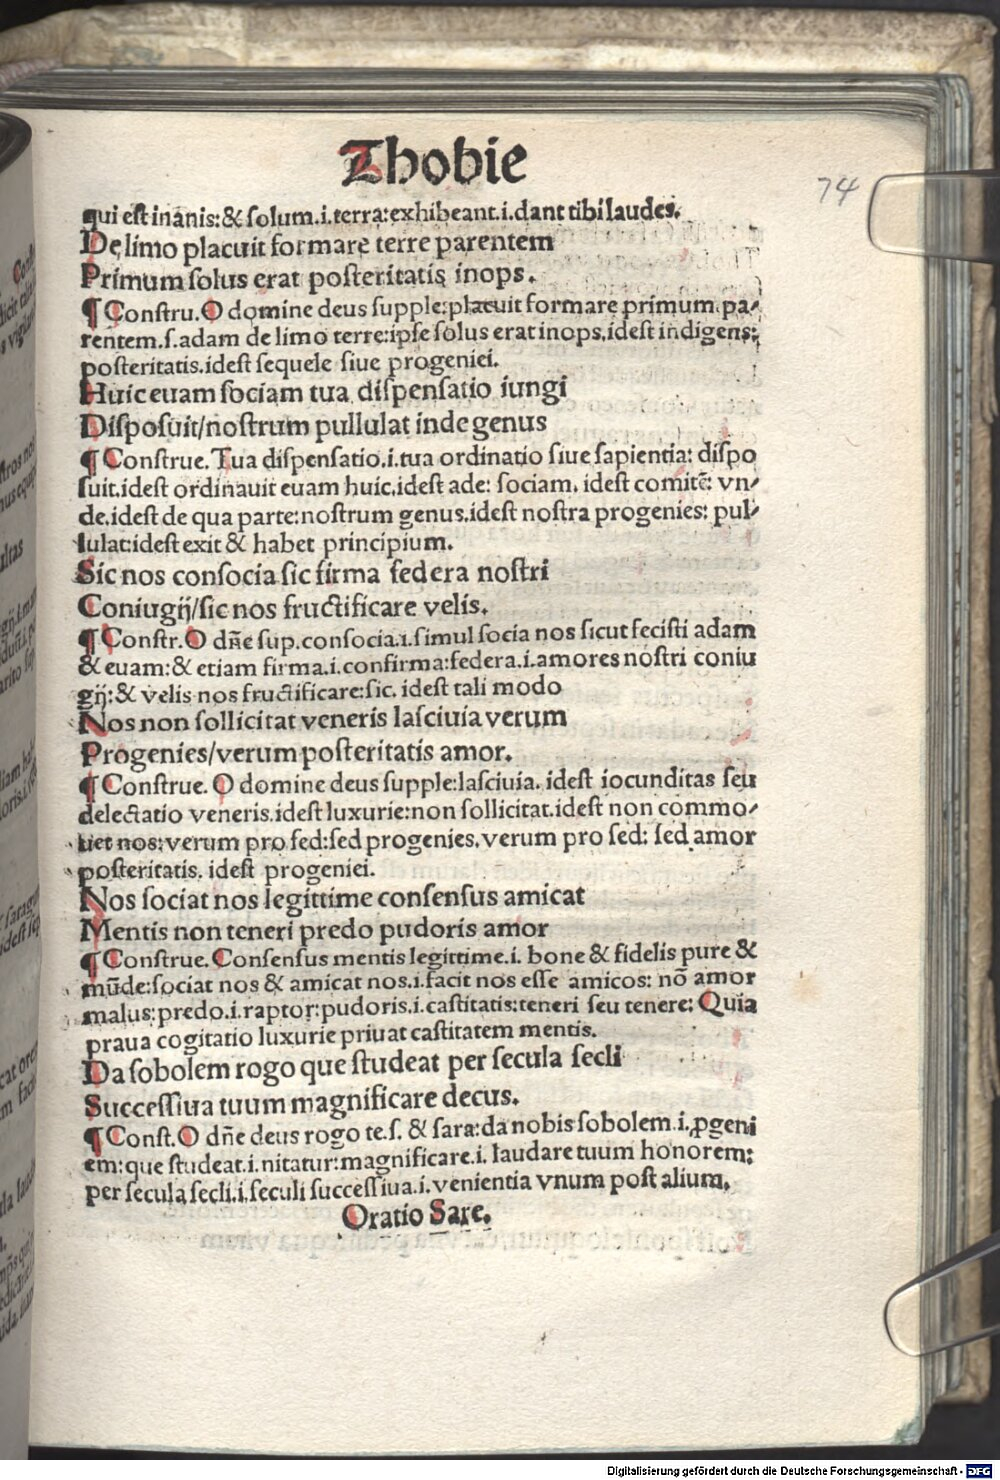 Thobie
74
qui est inanis:& ſolum.i.terra:exhibeant.i.dant tibi laudes.
De limo placuit formare terre parentem
Primum ſolus erat poſteritatis inops.
¶ Conſtru.O domine deus ſupple:placuit formare primum pa⸗
rentem.ſ.adam de limo terre:ipſe ſolus erat inops.ideſt indigens:
poſteritatis.ideſt ſequele ſiue progeniei.
Huic euam ſociam tua diſpenſatio iungi
Diſpoſuit/noſtrum pullulat inde genus
¶ Conſtrue.Tua diſpenſatio.i.tua ordinatio ſiue ſapientia: diſpo
ſuit.ideſt ordinauit euam huic.ideſt ade: ſociam. ideſt comitē: vn⸗
de.ideſt de qua parte:noſtrum genus.ideſt noſtra progenies: pul⸗
lulat:ideſt exit & habet principium.
Sic nos conſocia ſic firma federa noſtri
Coniugij/ſic nos fructificare velis.
¶ Conſtr.O dn̄e ſup.conſocia.i.ſimul ſocia nos ſicut feciſti adam
& euam:& etiam firma.i.confirma:federa.i.amores noſtri coniu
gij:& velis nos fructificare:ſic. ideſt tali modo
Nos non ſollicitat veneris laſciuia verum
Progenies/verum poſteritatis amor.
¶ Conſtrue. O domine deus ſupple:laſciuia. ideſt iocunditas ſeu
delectatio veneris.ideſt luxurie:non ſollicitat.ideſt non commo⸗
uet nos:verum pro ſed:ſed progenies.verum pro ſed: ſed amor
poſteritatis. ideſt progeniei.
Nos ſociat nos legittime conſenſus amicat
Mentis non teneri predo pudoris amor
¶ Conſtrue.Conſenſus mentis legittime.i. bone & fidelis pure &
mūde:ſociat nos & amicat nos.i.facit nos eſſe amicos: nō amor
malus:predo.i.raptor:pudoris.i.caſtitatis:teneri ſeu tenere: Quia
praua cogitatio luxurie priuat caſtitatem mentis.
Da ſobolem rogo que ſtudeat per ſecula ſecli
Succeſſiua tuum magnificare decus.
¶ Conſt.O dn̄e deus rogo te.ſ. & ſara:da nobis ſobolem.i.ꝓgeni
em:que ſtudeat.i.nitatur:magnificare.i. laudare tuum honorem:
per ſecula ſecli.i.ſeculi ſucceſſiua.i.venientia vnum poſt alium.
Oratio Sare.
Digitalisierung gefördert durch die Deutsche Forschungsgemeinschaft - DFG